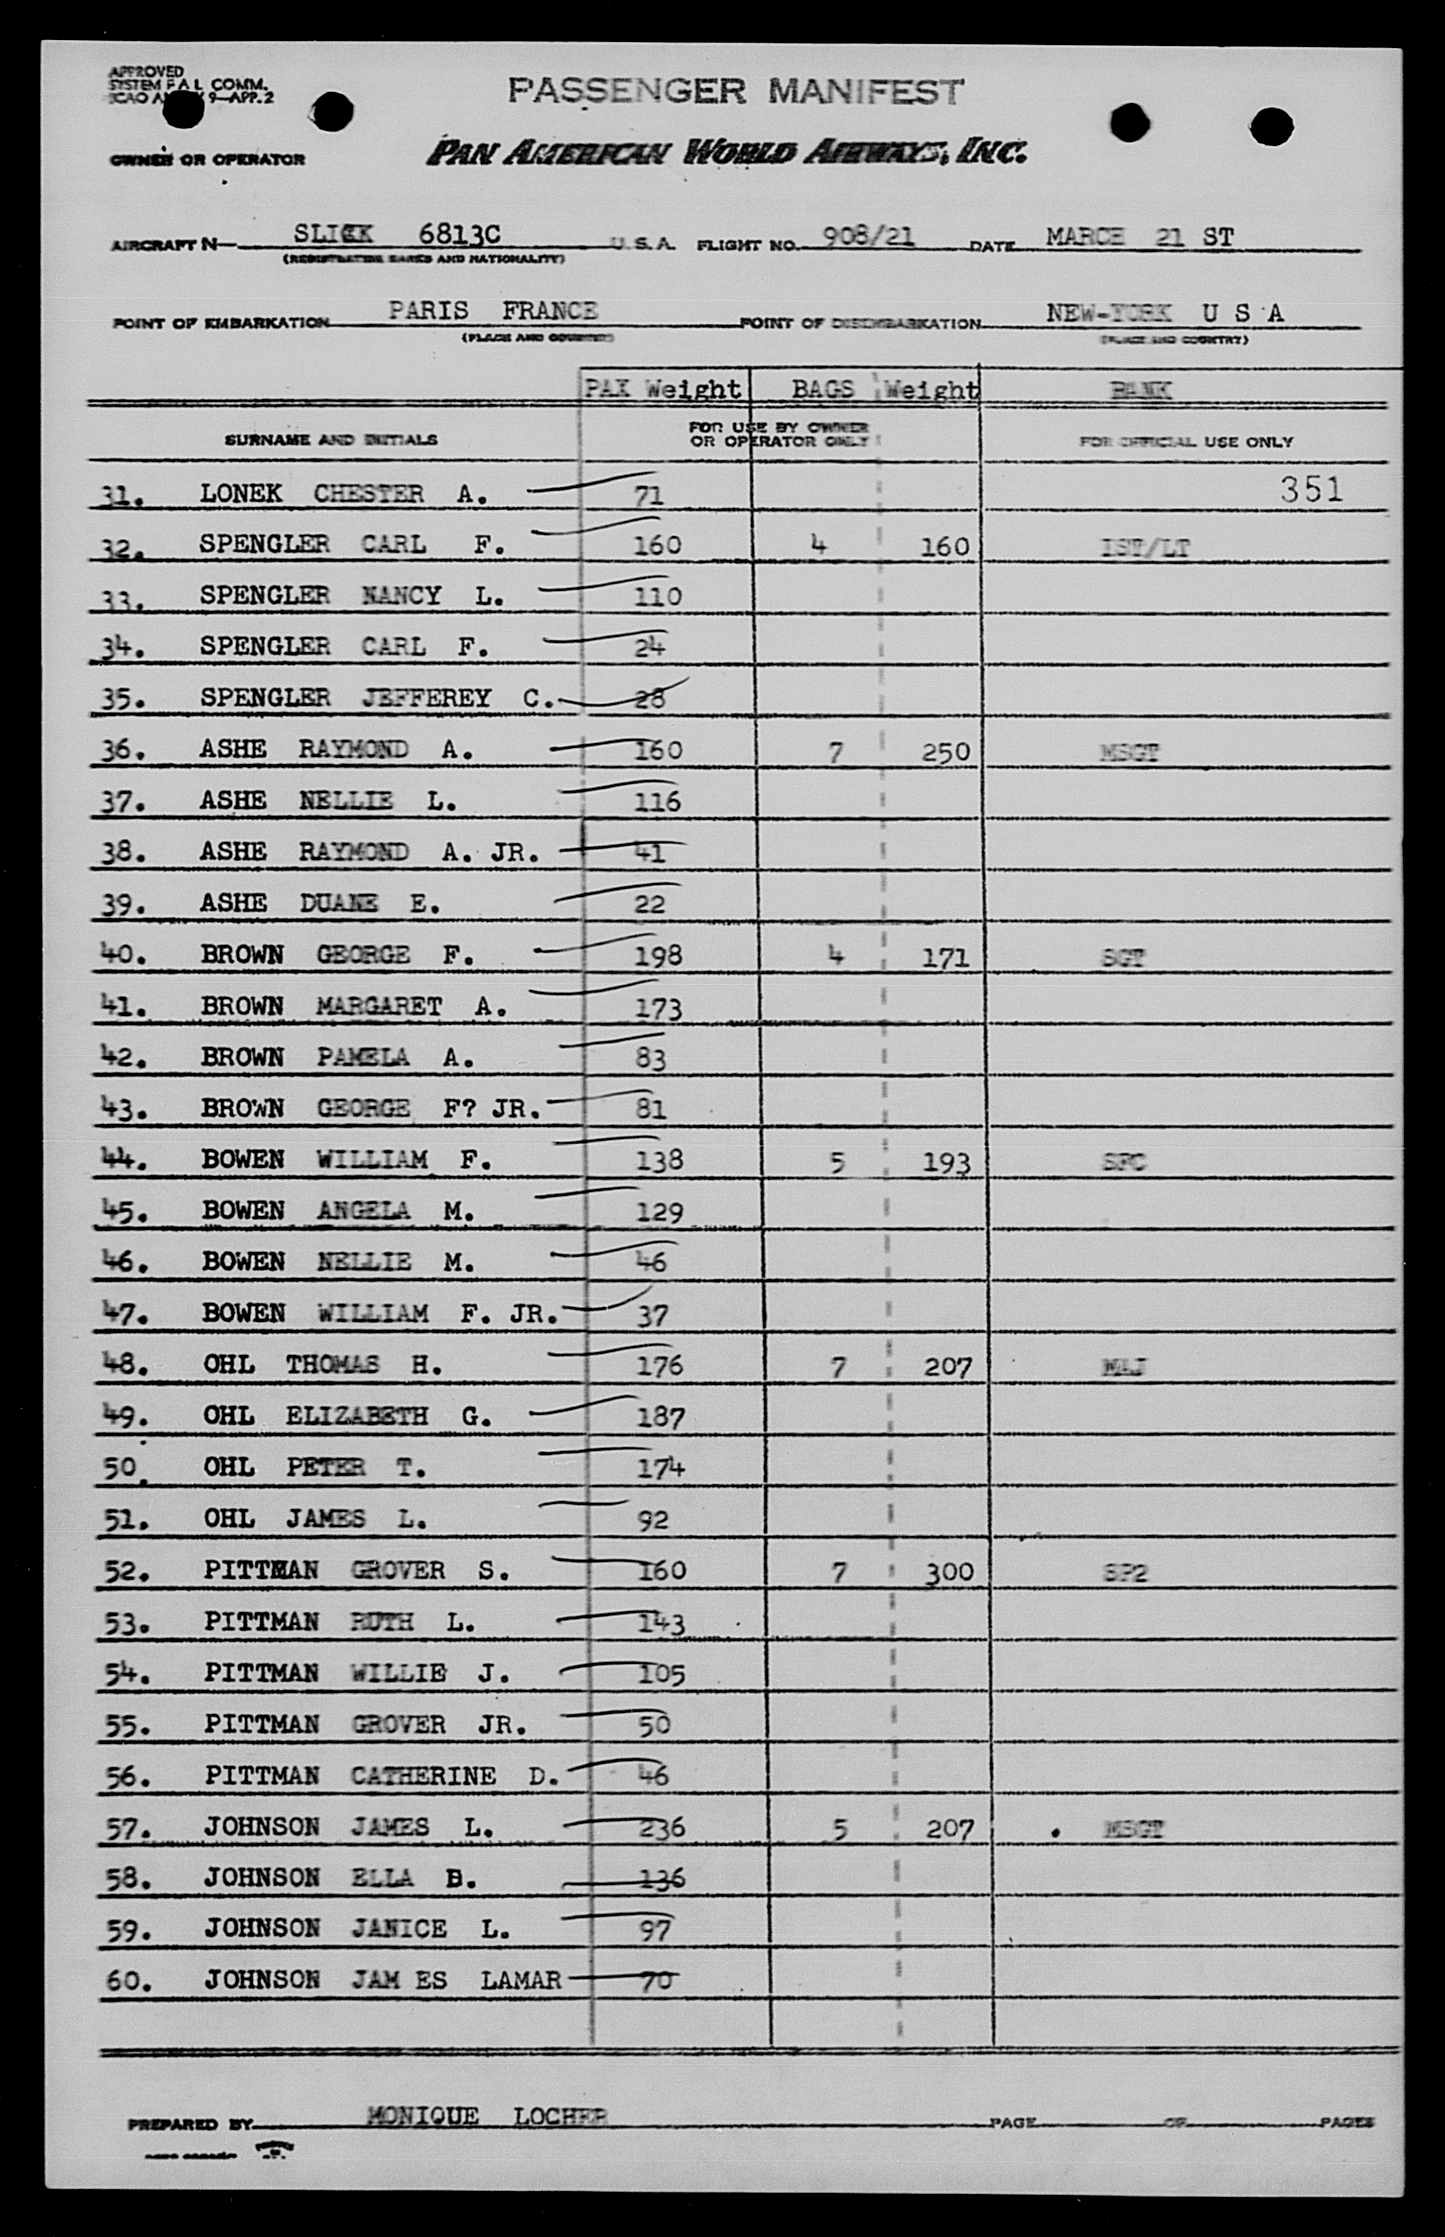 APPROVED
SYSTEM F A L COMM.
ICAO 9—APP. 2
PASSENGER MANIFEST
OWNER OR OPERATOR PAN AMERICAN WORLD AIRWAYS, INC.
AIRCRAFT N— SLICK 6813C U.S.A. FLIGHT NO. 908/21 DATE MARCH 21 ST
(REGISTRATION MARKS AND NATIONALITY)
POINT OF EMBARKATION PARIS FRANCE POINT OF DISEMBARKATION NEW-YORK U S A
(PLACE AND COUNTRY) (PLACE AND COUNTRY)
PAX Weight BAGS Weight RANK
SURNAME AND INITIALS FOR USE BY OWNER OR OPERATOR ONLY FOR OFFICIAL USE ONLY
31. LONEK CHESTER A. 71 351
32. SPENGLER CARL F. 160 4 160 IST/LT
33. SPENGLER NANCY L. 110
34. SPENGLER CARL F. 24
35. SPENGLER JEFFEREY C. 28
36. ASHE RAYMOND A. 160 7 250 MSGT
37. ASHE NELLIE L. 116
38. ASHE RAYMOND A. JR. 41
39. ASHE DUANE E. 22
40. BROWN GEORGE F. 198 4 171 SGT
41. BROWN MARGARET A. 173
42. BROWN PAMELA A. 83
43. BROWN GEORGE F? JR. 81
44. BOWEN WILLIAM F. 138 5 193 SFC
45. BOWEN ANGELA M. 129
46. BOWEN NELLIE M. 46
47. BOWEN WILLIAM F. JR. 37
48. OHL THOMAS H. 176 7 207 MAJ
49. OHL ELIZABETH G. 187
50. OHL PETER T. 174
51. OHL JAMES L. 92
52. PITTMAN GROVER S. 160 7 300 SP2
53. PITTMAN RUTH L. 143
54. PITTMAN WILLIE J. 105
55. PITTMAN GROVER JR. 50
56. PITTMAN CATHERINE D. 46
57. JOHNSON JAMES L. 236 5 207 MSGT
58. JOHNSON ELLA B. 136
59. JOHNSON JANICE L. 97
60. JOHNSON JAM ES LAMAR 70
PREPARED BY MONIQUE LOCHER PAGE OF PAGES